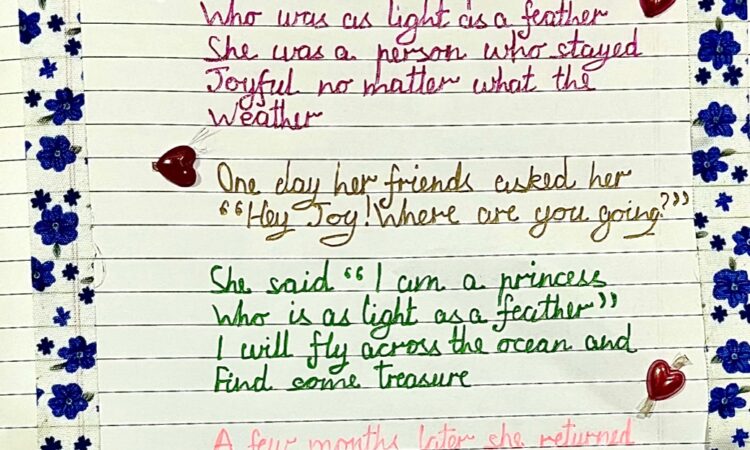 Who was as light as a feather
She was a person who stayed
Joyful no matter what the
Weather
One day her friends asked her
“Hey Joy! Where are you going?”
She said “I am a princess
Who is as light as a feather”
I will fly across the ocean and
Find some treasure
A few months later she returned